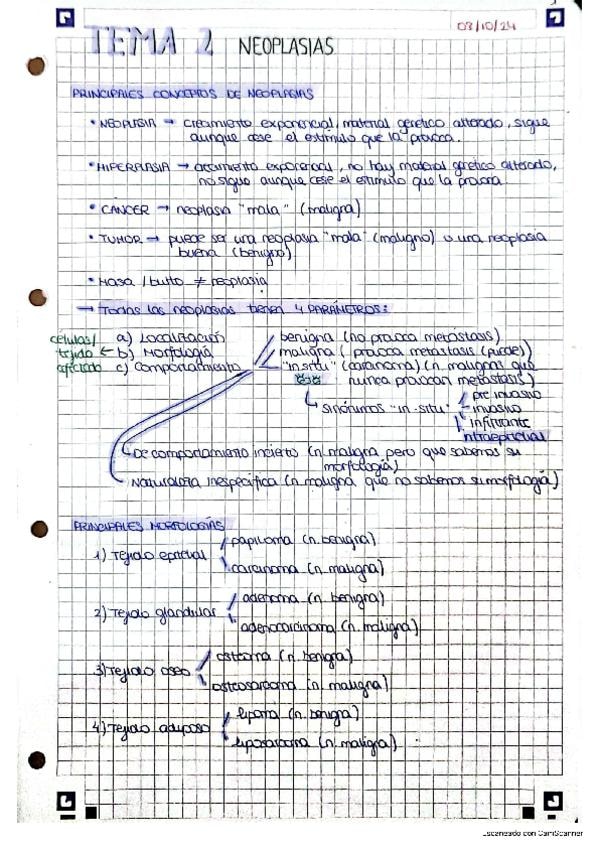 03/10/24
TEMA 2 NEOPLASIAS
PRINCIPALES CONCEPTOS DE NEOPLASIAS
• NEOPLASIA → crecimiento exponencial, material genético alterado, sigue
aunque cese el estímulo que la provoca.
• HIPERPLASIA → crecimiento exponencial, no hay material genético alterado,
no sigue aunque cese el estímulo que la provoca.
• CÁNCER → neoplasia "mala" (maligna)
• TUMOR → puede ser una neoplasia "mala" (maligno) o una neoplasia
buena (benigno)
• Masa / bulto ≠ neoplasia
→ Todas las neoplasias tienen 4 PARÁMETROS:
células/
tejido ←
afectado
a) Localización
b) Morfología
c) Comportamiento
benigna (no provoca metástasis)
maligna (provoca metástasis (puede))
"in situ" (carcinoma) (n. malignas que
nunca provocan metástasis)
sinónimos "in-situ"
pre invasivo
invasivo
infiltrante
intraepitelial
De comportamiento incierto (n. maligna pero que sabemos su
morfología)
Naturaleza inespecífica (n. maligna que no sabemos su morfología)
PRINCIPALES MORFOLOGÍAS
1) Tejido epitelial
papiloma (n. benigna)
carcinoma (n. maligna)
2) Tejido glandular
adenoma (n. benigna)
adenocarcinoma (n. maligna)
3) Tejido óseo
osteoma (n. benigna)
osteosarcoma (n. maligna)
4) Tejido adiposo
lipoma (n. benigna)
liposarcoma (n. maligna)
Escaneado con CamScanner